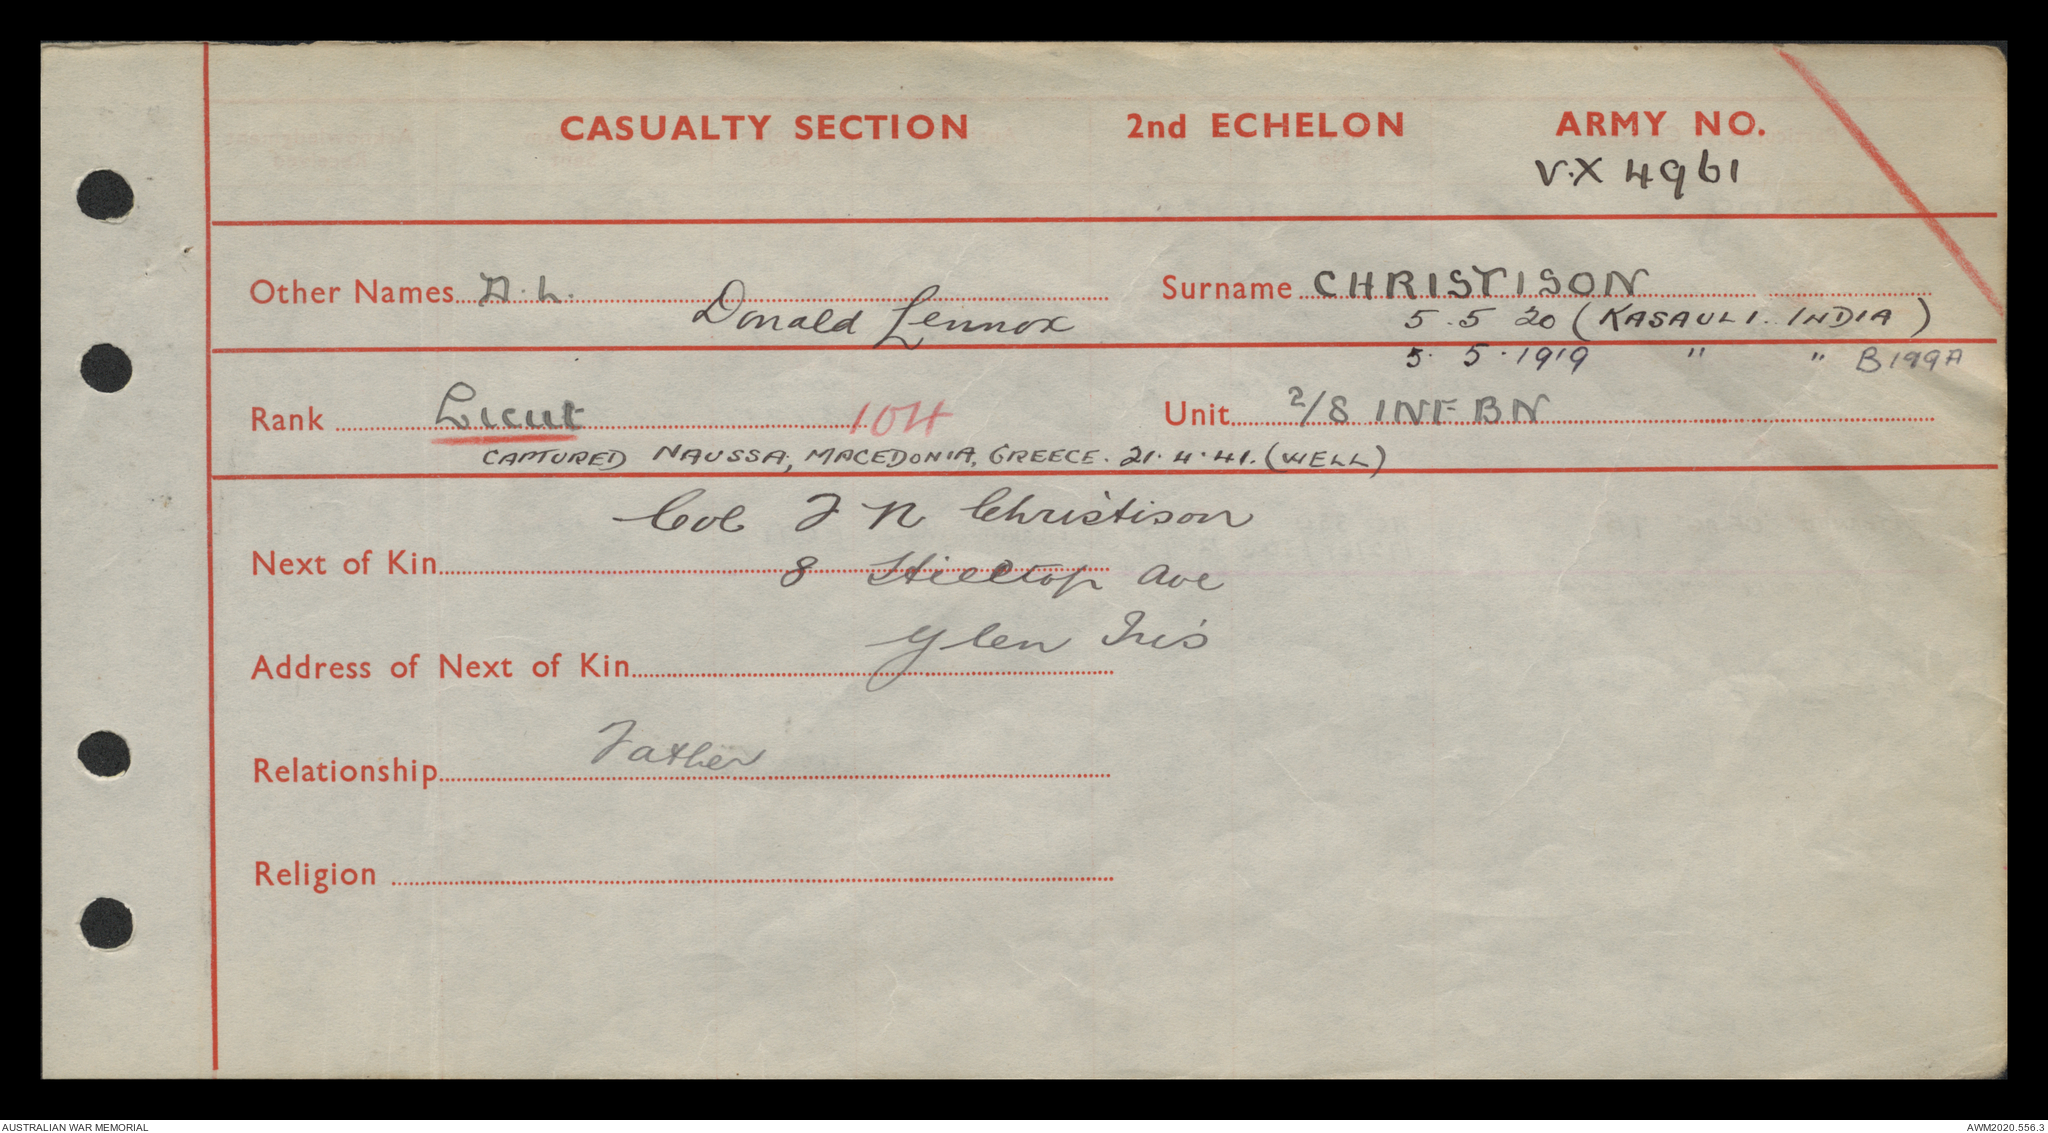 CASUALTY SECTION 2nd ECHELON ARMY NO.
V.X 4961
Other Names D. L. Surname CHRISTISON
Donald Lennox 5.5 20 (KASAULI. INDIA)
5. 5. 1919 " " B199A
Rank Lieut 104 Unit 2/8 INF BN
CAPTURED NAUSSA, MACEDONIA, GREECE. 21.4.41. (WELL)
Col F N Christison
Next of Kin 8 Hilltop Ave
Glen Iris
Address of Next of Kin
Relationship Father
Religion
AUSTRALIAN WAR MEMORIAL AWM2020.556.3